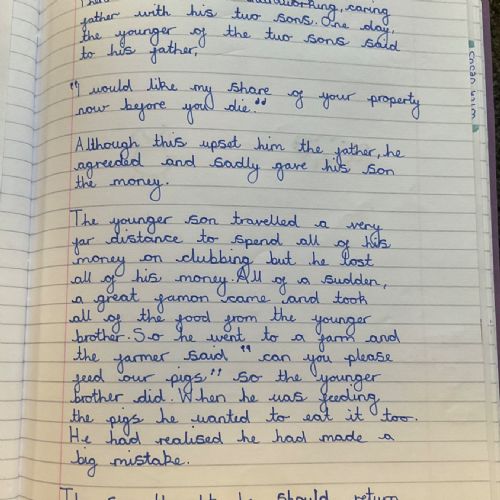 hardworking, caring
father with his two sons. One day,
the younger of the two sons said
to his father.
"I would like my share of your property
now before you die."
Although this upset him the father, he
agreeded and sadly gave his son
the money.
The younger son travelled a very
far distance to spend all of his
money on clubbing but he lost
all of his money. All of a sudden,
a great famon came and took
all of the food from the younger
brother. So he went to a farm and
the farmer said "can you please
feed our pigs" so the younger
brother did. When he was feeding
the pigs he wanted to eat it too.
He had realised he had made a
big mistake.
he should return